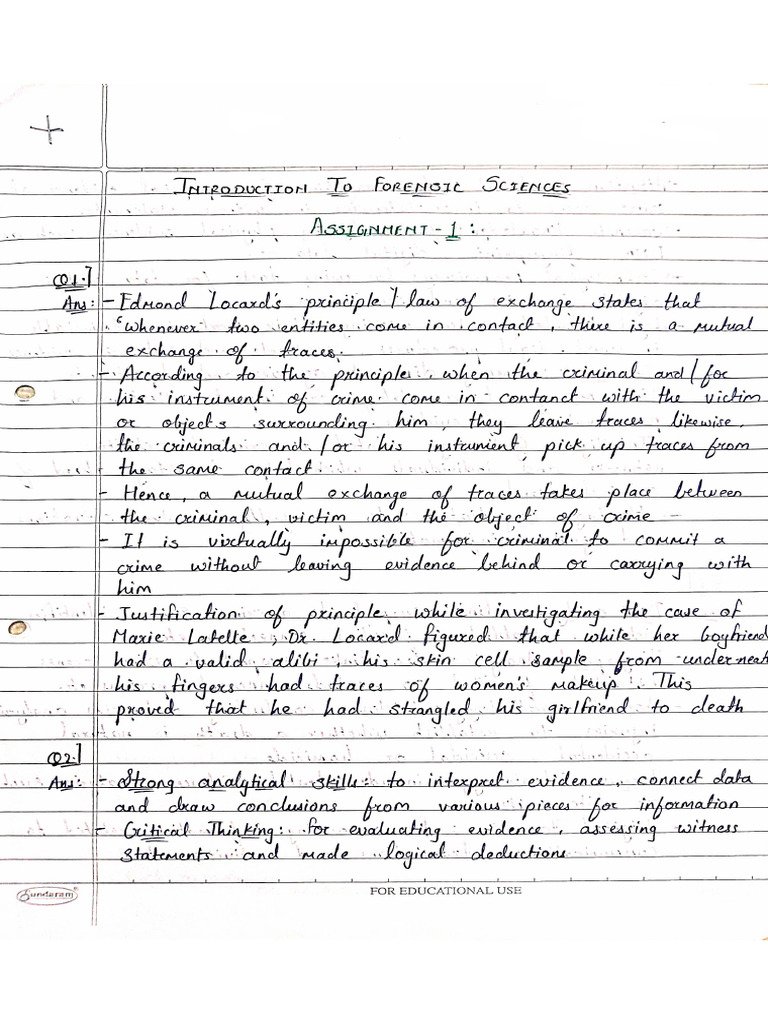 INTRODUCTION TO FORENSIC SCIENCES
ASSIGNMENT - 1 :
Q1.]
Ans: - Edmond Locard's principle / law of exchange states that
"whenever two entities come in contact, there is a mutual
exchange of traces.
- According to the principle, when the criminal and/for
his instrument of crime come in contanct with the victim
or objects surrounding him, they leave traces, likewise,
the criminals and /or his instrument, pick up traces from
the same contact.
- Hence, a mutual exchange of traces takes place between
the criminal, victim and the object of crime -
- It is virtually impossible for criminal to commit a
crime without leaving evidence behind or carrying with
him
- Justification of principle, while investigating the case of
Marie Latelle, Dr. Locard figured that while her boyfriend
had a valid alibi, his skin cell sample from underneath
his fingers had traces of women's makeup. This
proved that he had strangled his girlfriend to death
Q2.]
Ans: - Strong analytical skills: to interpret evidence, connect data
and draw conclusions from various pieces for information
- Critical Thinking: for evaluating evidence, assessing witness
statements and made logical deductions
Sundaram
FOR EDUCATIONAL USE